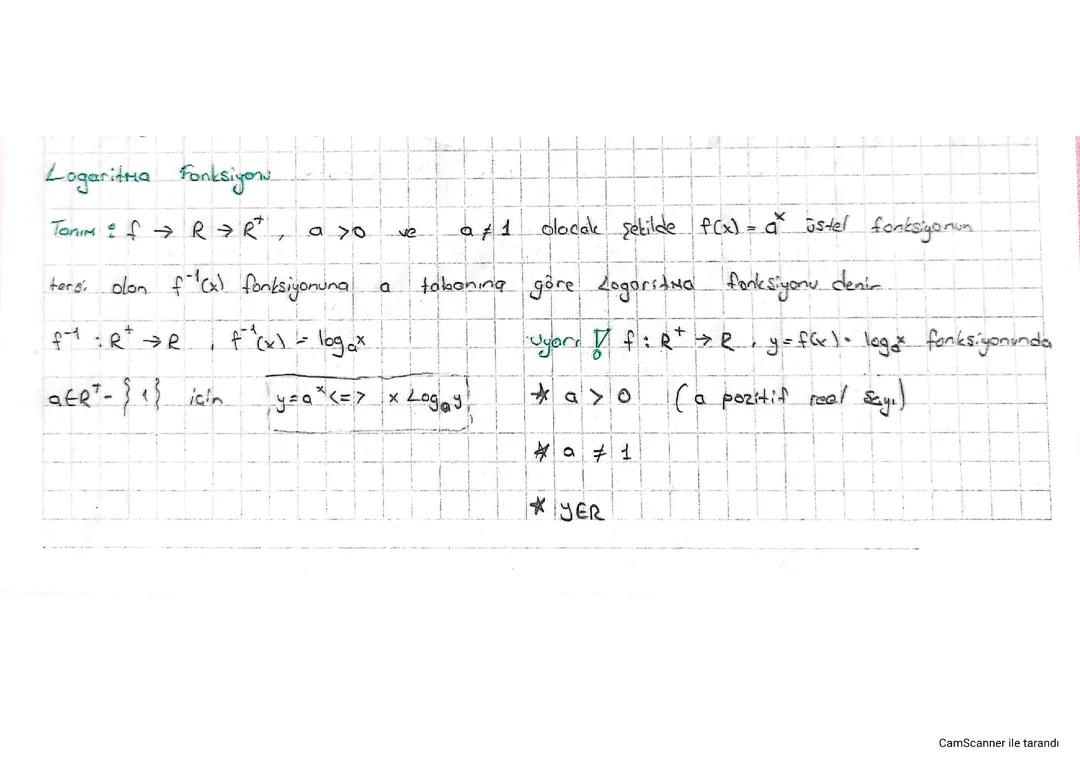 Logaritma Fonksiyonu
Tanım : f → R → R⁺, a >0 ve a ≠ 1 olacak şekilde f(x) = aˣ üstel fonksiyonun
tersi olan f⁻¹(x) fonksiyonuna a tabanına göre Logaritma fonksiyonu denir.
f⁻¹ : R⁺ → R , f⁻¹(x) = logₐx
a∈R⁺- }1} için y=aˣ <=> x Logₐy
Uyarı ! f : R⁺ → R , y = f(x) = logₐx fonksiyonunda
* a > 0 (a pozitif reel sayı)
* a ≠ 1
* y∈R
CamScanner ile tarandı